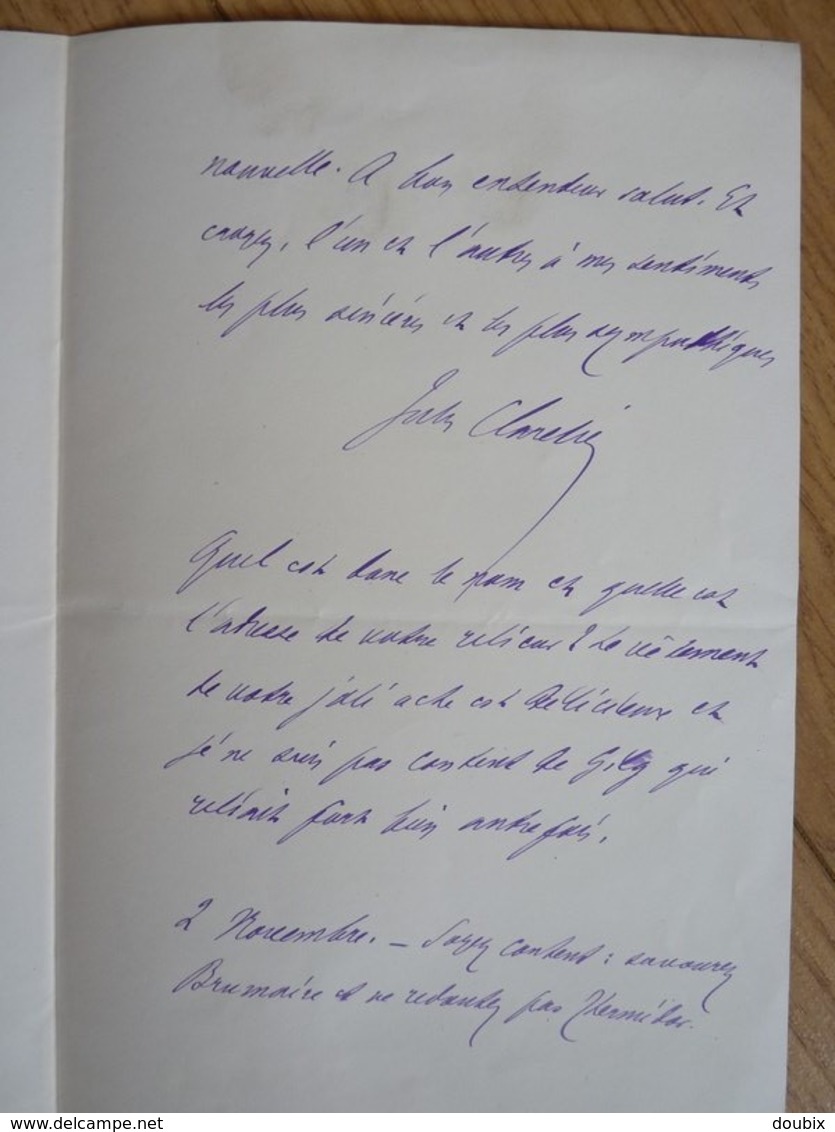 nouvelle. A bon entendeur salut. Et
croyez, l'un et l'autre à mes sentiments
les plus sincères et les plus sympathiques
Jules Claretie
Quel est donc le nom et quelle est
l'adresse de votre relieur ? Le vêtement
de votre joli acte est délicieux et
je ne suis pas content de qui
reliait fort bien autrefois.
2 Novembre. — Soyez content : savourez
Brumaire et ne redoutez pas Thermidor.
www.delcampe.net
doubix